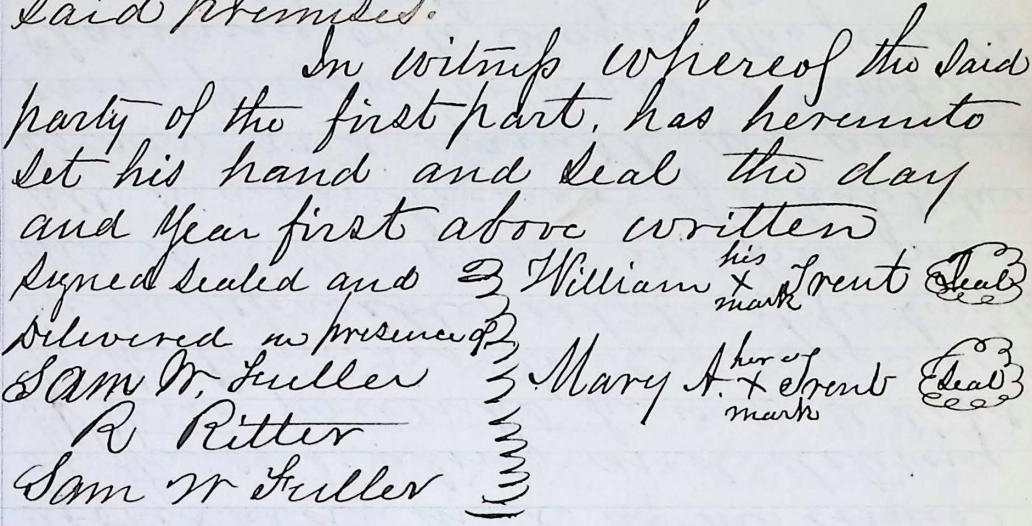 said premises.
In witness whereof the said
party of the first part, has hereunto
set his hand and seal the day
and year first above written
signed sealed and
delivered in presence of
Sam W. Fuller
R Ritter
Sam W Fuller
his
William X Trent Seal
mark
her
Mary A. X Trent Seal
mark